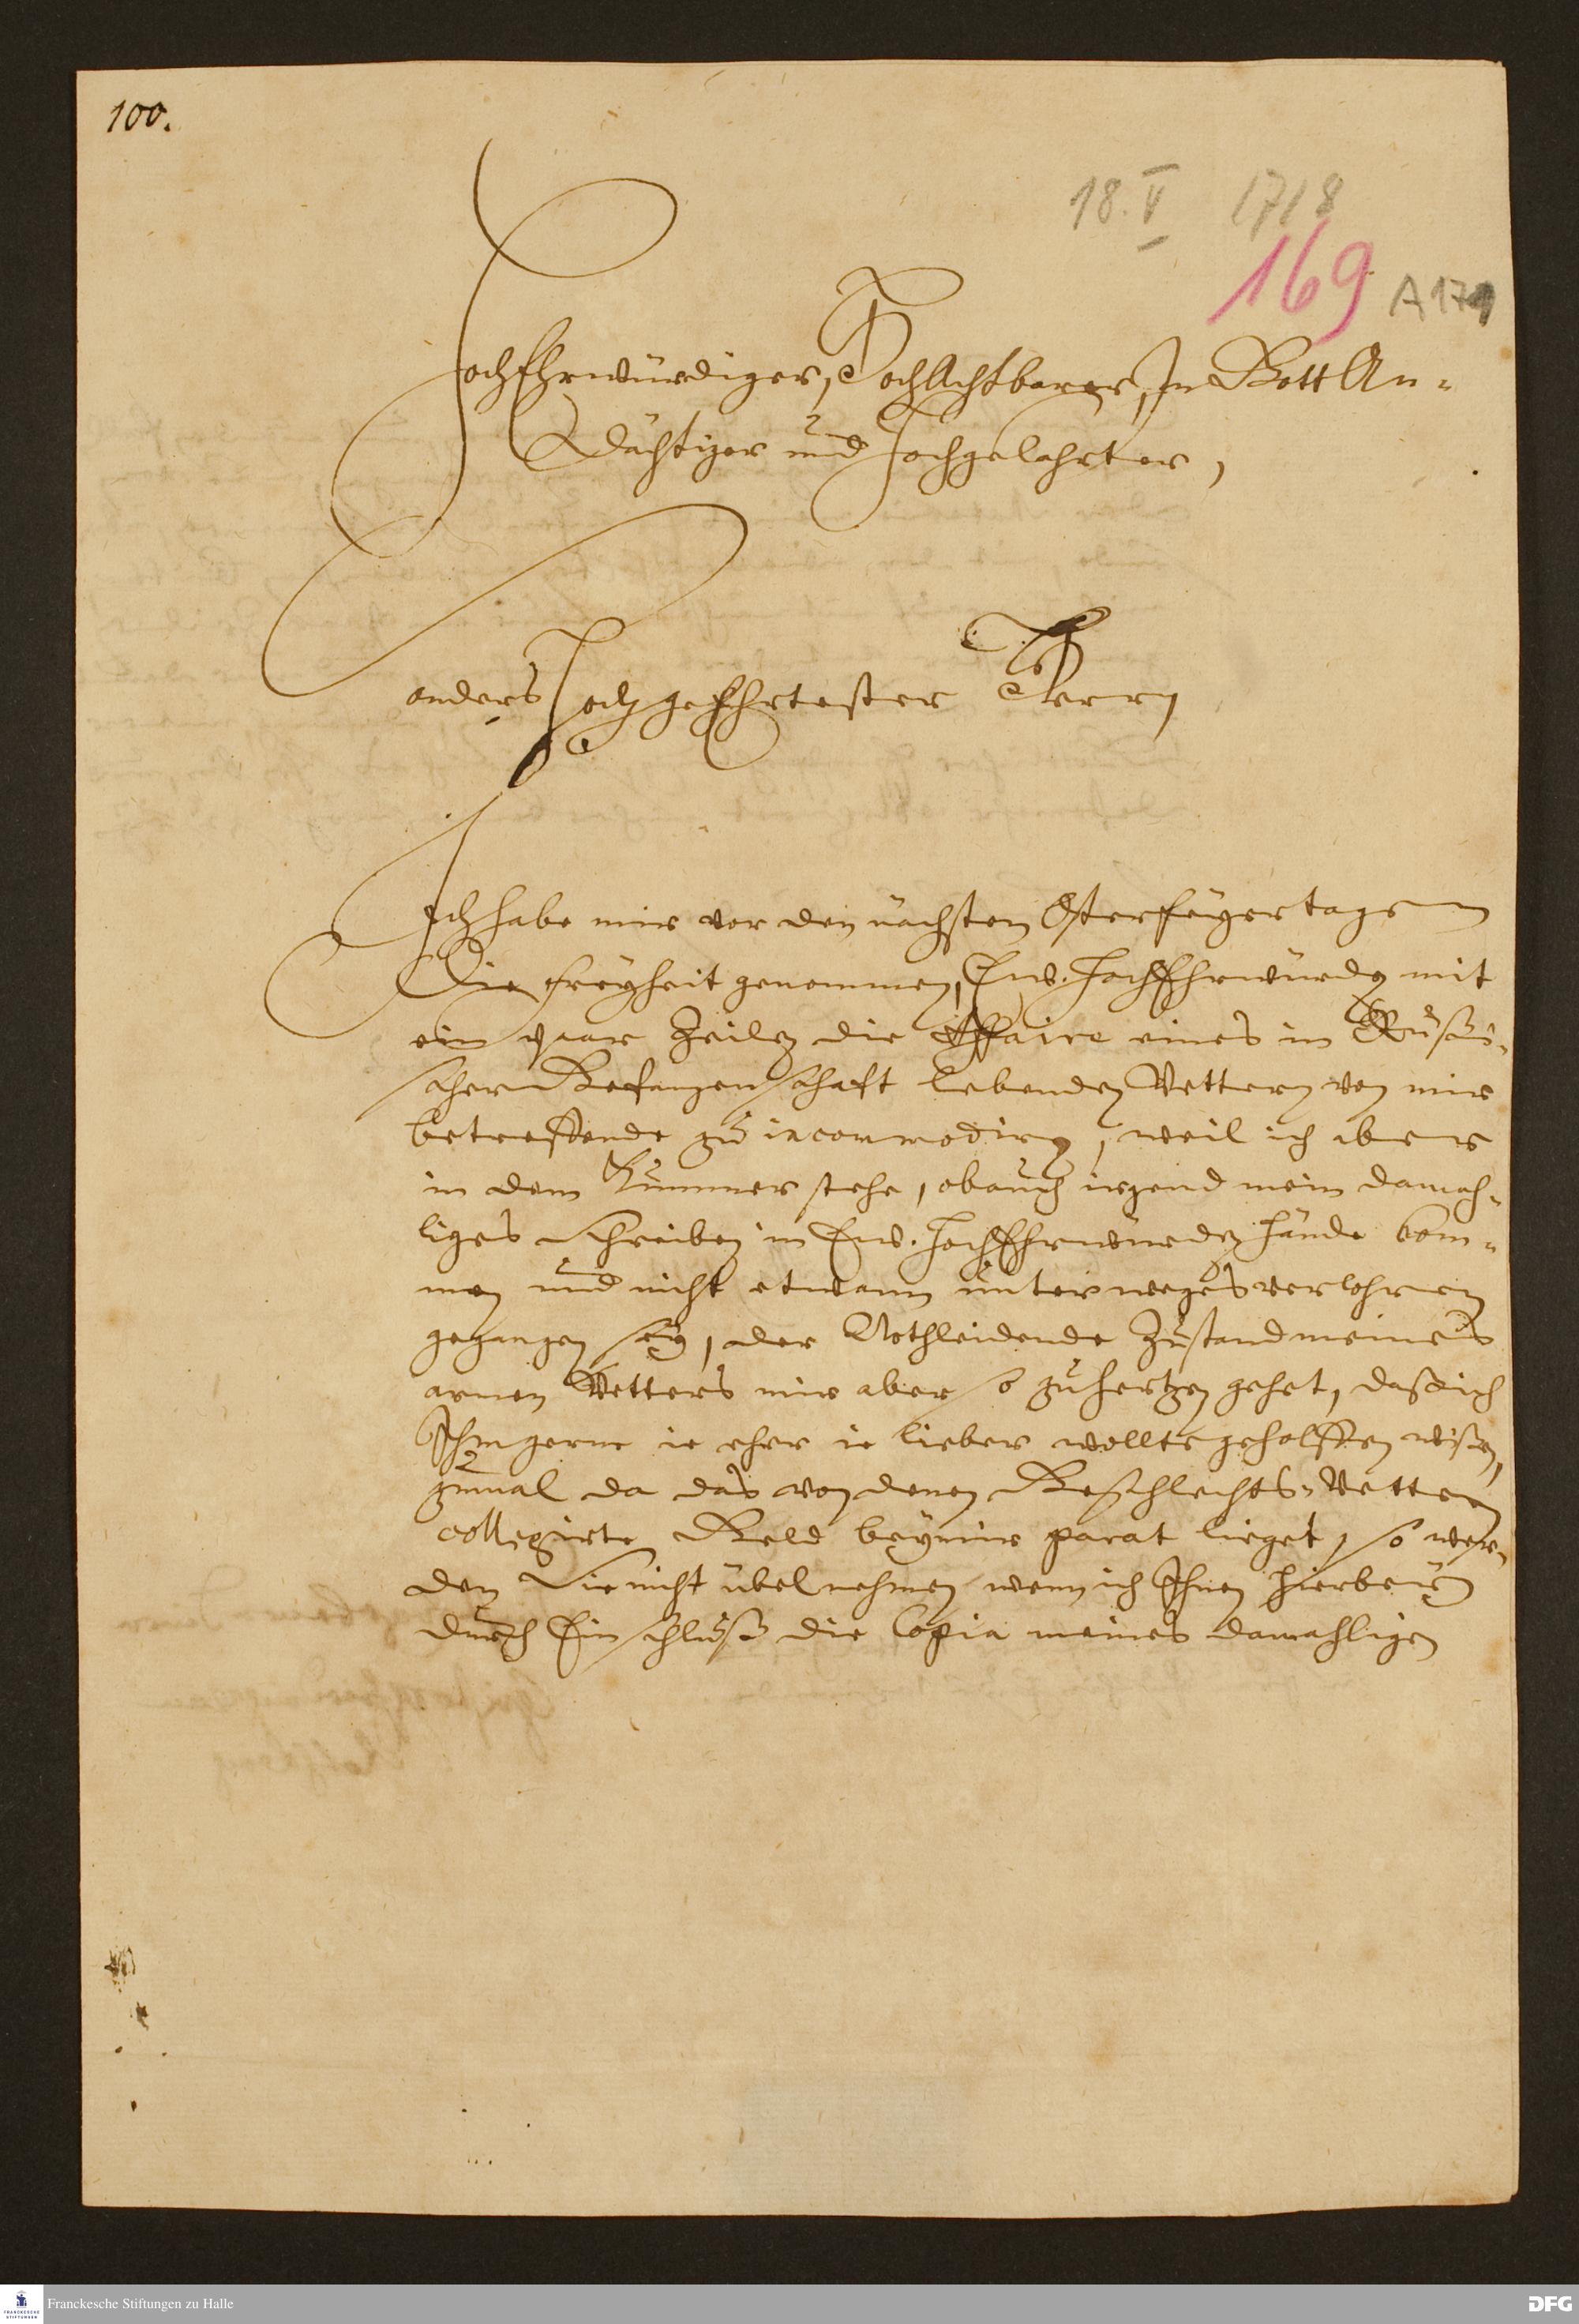 100.
18. V 1718
169 A171
HochEhrwürdiger, HochAchtbarer, In Gott An-
dächtiger und Hochgelahrter,
onders HochgeEhrtester Herr
Ich habe mir vor den nächsten Osterfeyertagen
Die freyheit genommen, Ew. HochEhrwürdn mit
ein paar Zeilen die Affaire eines in Rußi-
scher Gefangenschaft lebenden Vettern von mir
betreffende zu incommodirn, weil ich aber
in dem Kummer stehe, ob auch irgend mein damah-
liges Schreiben in Ew. HochEhrwürden Hände kom-
men und nicht etwann unterweges verlohren
gegangen sey, der Nothleidende Zustand meines
armen Vetters mir aber so zu hertzen gehet, daß ich
Ihm gerne ie eher ie lieber wollte geholffen wißen,
zumal da das von denen Geschlechts-Vettern
collegirte Geld bey mir parat lieget, so wer-
den Sie nicht übel nehmen wenn ich Ihnen hierbey
durch Einschluß die Copia meines damahligen
FRANCKESCHE STIFTUNGEN
Franckesche Stiftungen zu Halle
DFG